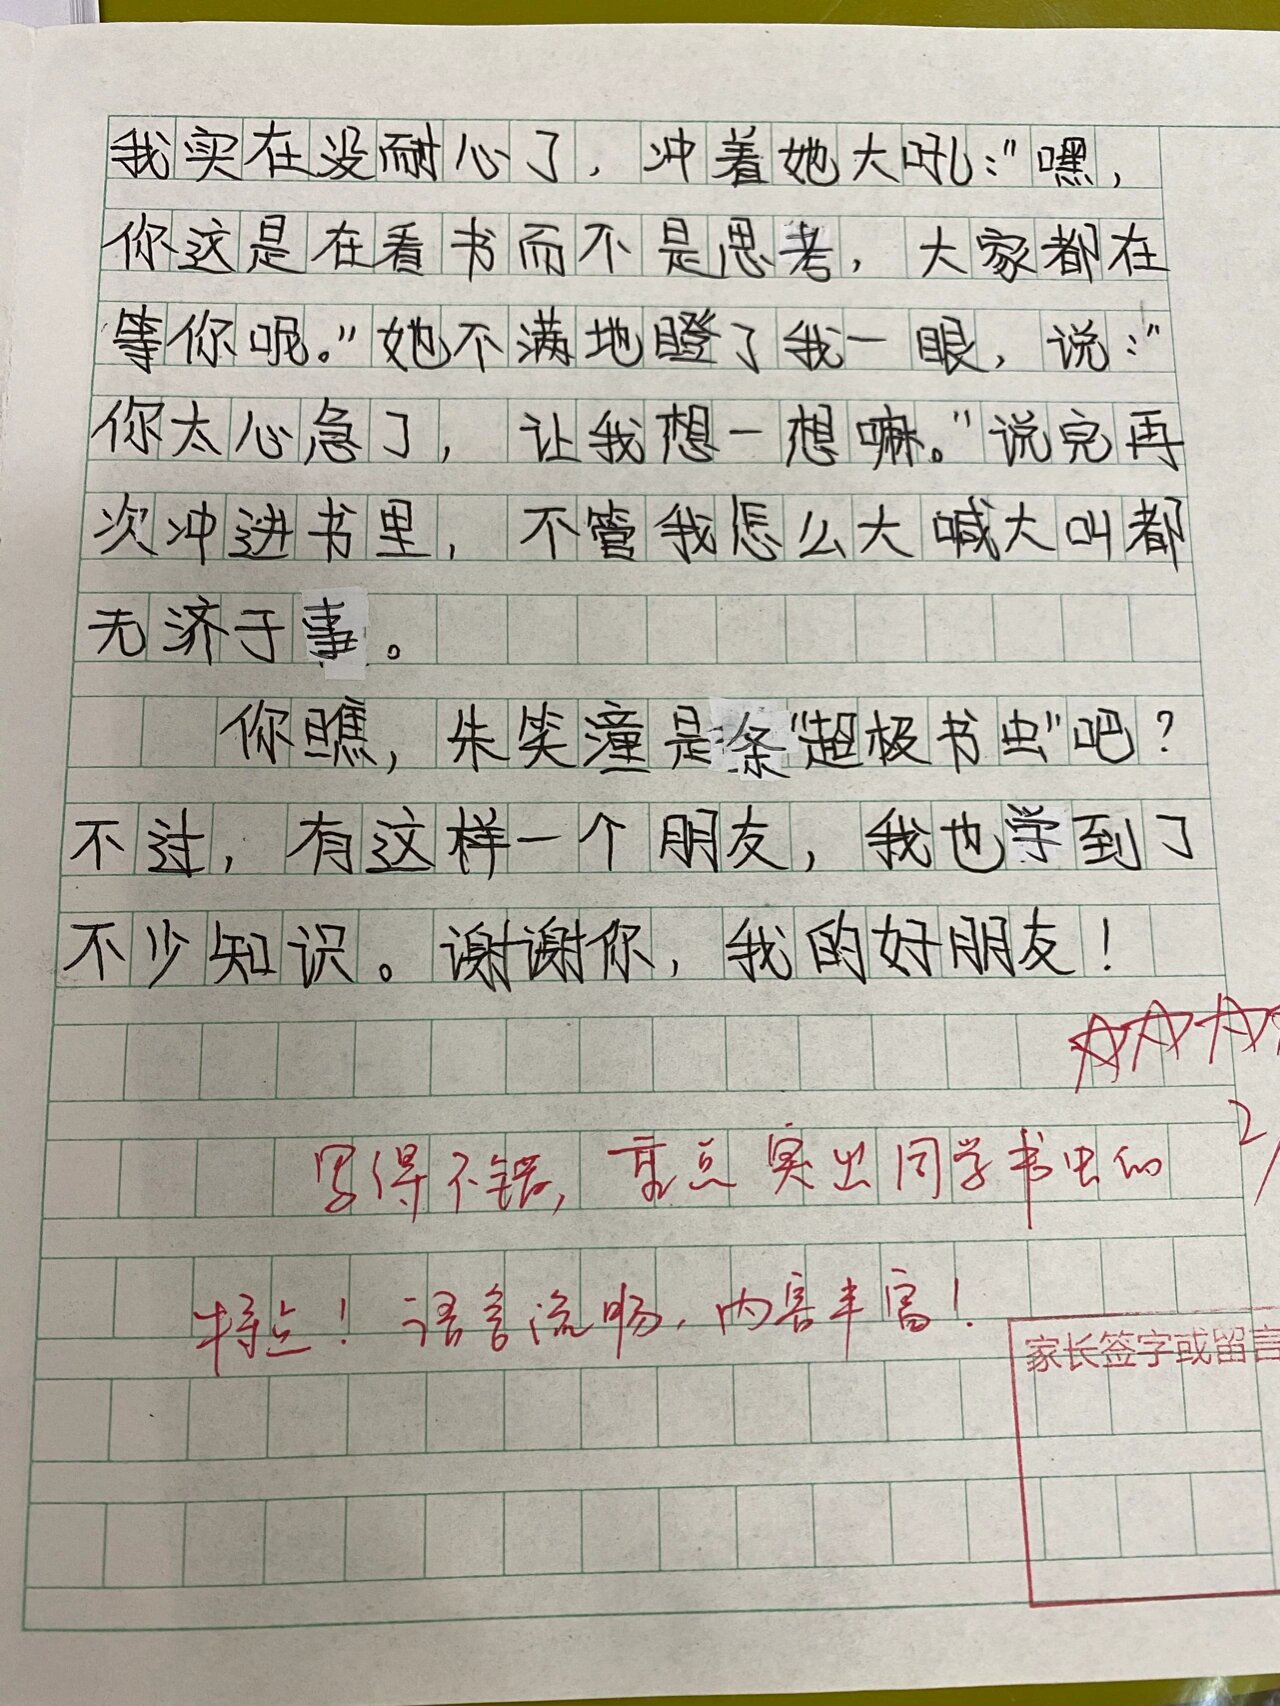 我实在没耐心了，冲着她大吼："嘿，
你这是在看书而不是思考，大家都在
等你呢。"她不满地瞪了我一眼，说："
你太心急了，让我想一想嘛。"说完再
次冲进书里，不管我怎么大喊大叫都
无济于事。
你瞧，朱笑潼是条"超极书虫"吧？
不过，有这样一个朋友，我也学到了
不少知识。谢谢你，我的好朋友！
2/
写得不错，重点突出同学书虫的
特点！语言流畅，内容丰富！
家长签字或留言